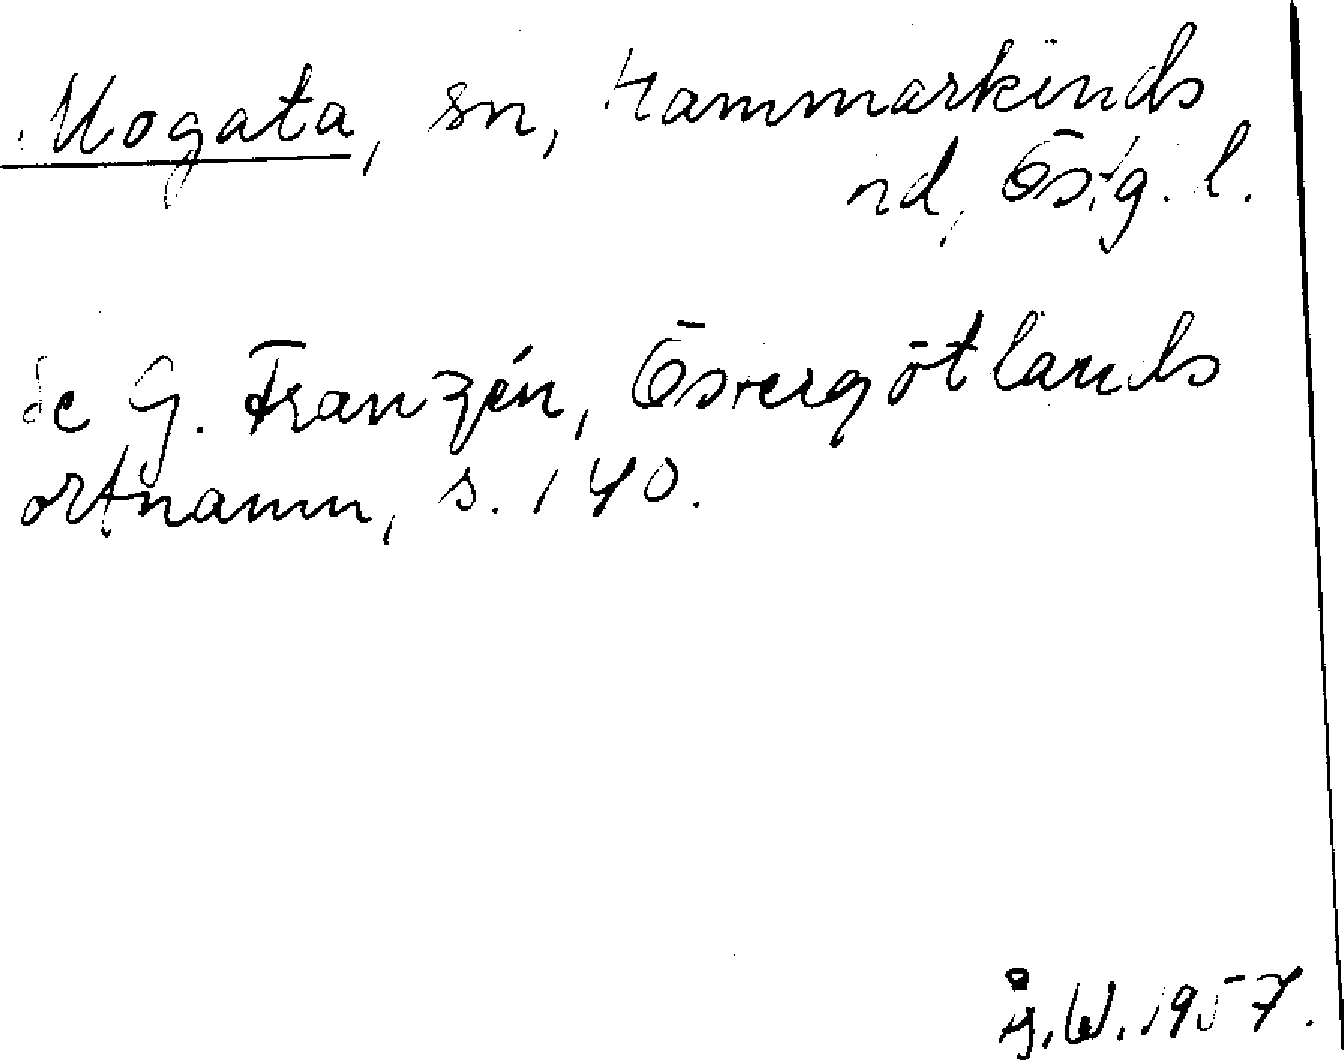 Mogata, sn, Hammarkinds
hd, Östg. l.
Se G. Franzén, Östergötlands
ortnamn, s. 140.
Å. W. 1957.